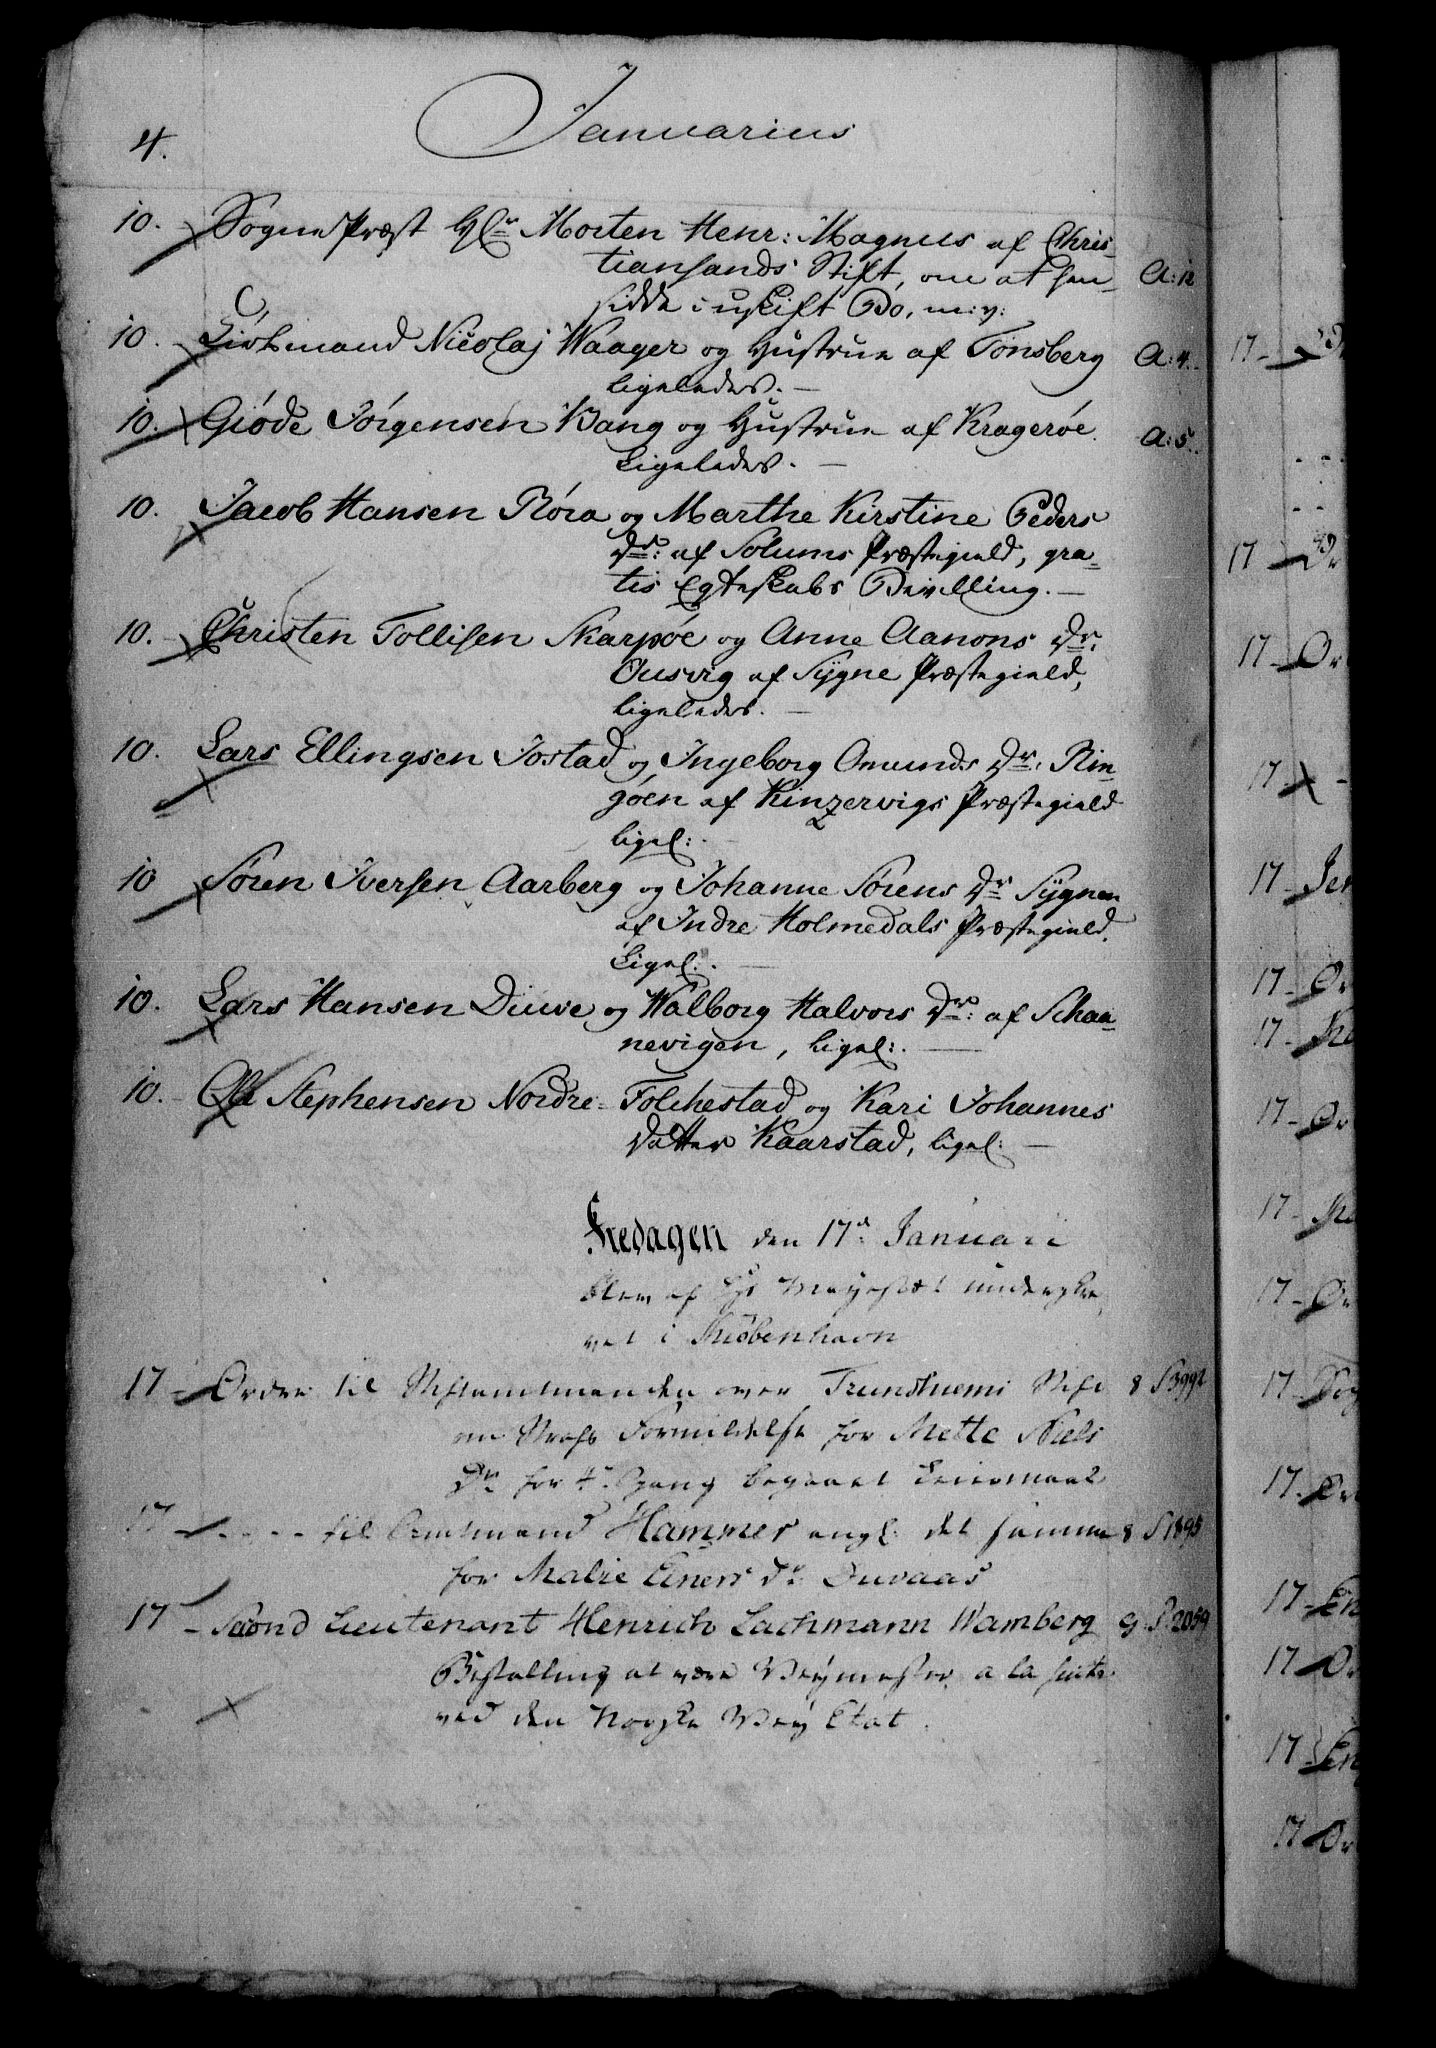 4.
Januarius
10. SognePræst Hr Morten Henr: Magnus af Chris-
tiansands Stift, om at hen- A: 12
sidde i uskift Bo, m: v:
10. Kiøbmand Nicolaj Waager og Hustrue af Tønsberg A: 4.
ligeledes. —
10. Giøde Jørgensen Bang og Hustrue af Kragerøe. A: 5.
Ligeledes. —
10. Jacob Hansen Røra og Marthe Kirstine Peders
Dr: af Solums Præstegield, gra-
tis Egteskabs Bevilling. —
10. Christen Tollisen Skarpøe og Anne Aanons Dr:
Ousvig af Sygne Præstegield,
ligeledes. —
10. Lars Ellingsen Jostad og Ingeborg Omunds Dr: Rin-
gøen af Kinzervigs Præstegield
ligel: —
10 Søren Iversen Aarberg og Johanne Sørens Dr Sygnen
af Indre Holmedals Præstegield.
Ligel: —
10. Lars Hansen Diuve og Walborg Halvors Dr: af Schaa-
nevigen, ligel: —
10. Ole Stephensen Nordre-Folchestad og Kari Johannes
Datter Kaarstad, ligel: —
Fredagen den 17de Januari
blev af Hs Mayestæt underskre-
vet i Kiøbenhavn
17 - Ordre til Stiftamtmanden over Trundhiems Stift 8 S 3992
om Straf Formildelse for Mette Niels
Dr for 4de Gang begaaet Leiermaal
17 - - - - til Amtmand Hammer angl. det samme 8 S 1895
for Malie Einers Dr Duvaas
17 - Second Lieutenant Henrich Lachmann Wamberg G: S: 2059
Bestalling at være Veymester a la suite
ved den Norske Vey Etat.
17 -
17 -
17 - Or
17
17 - Jen
17 - Or
17 -
17 - Or
17 -
17 - Or
17 -
17 - Or
17 -
17 - Or
17
17 - Or